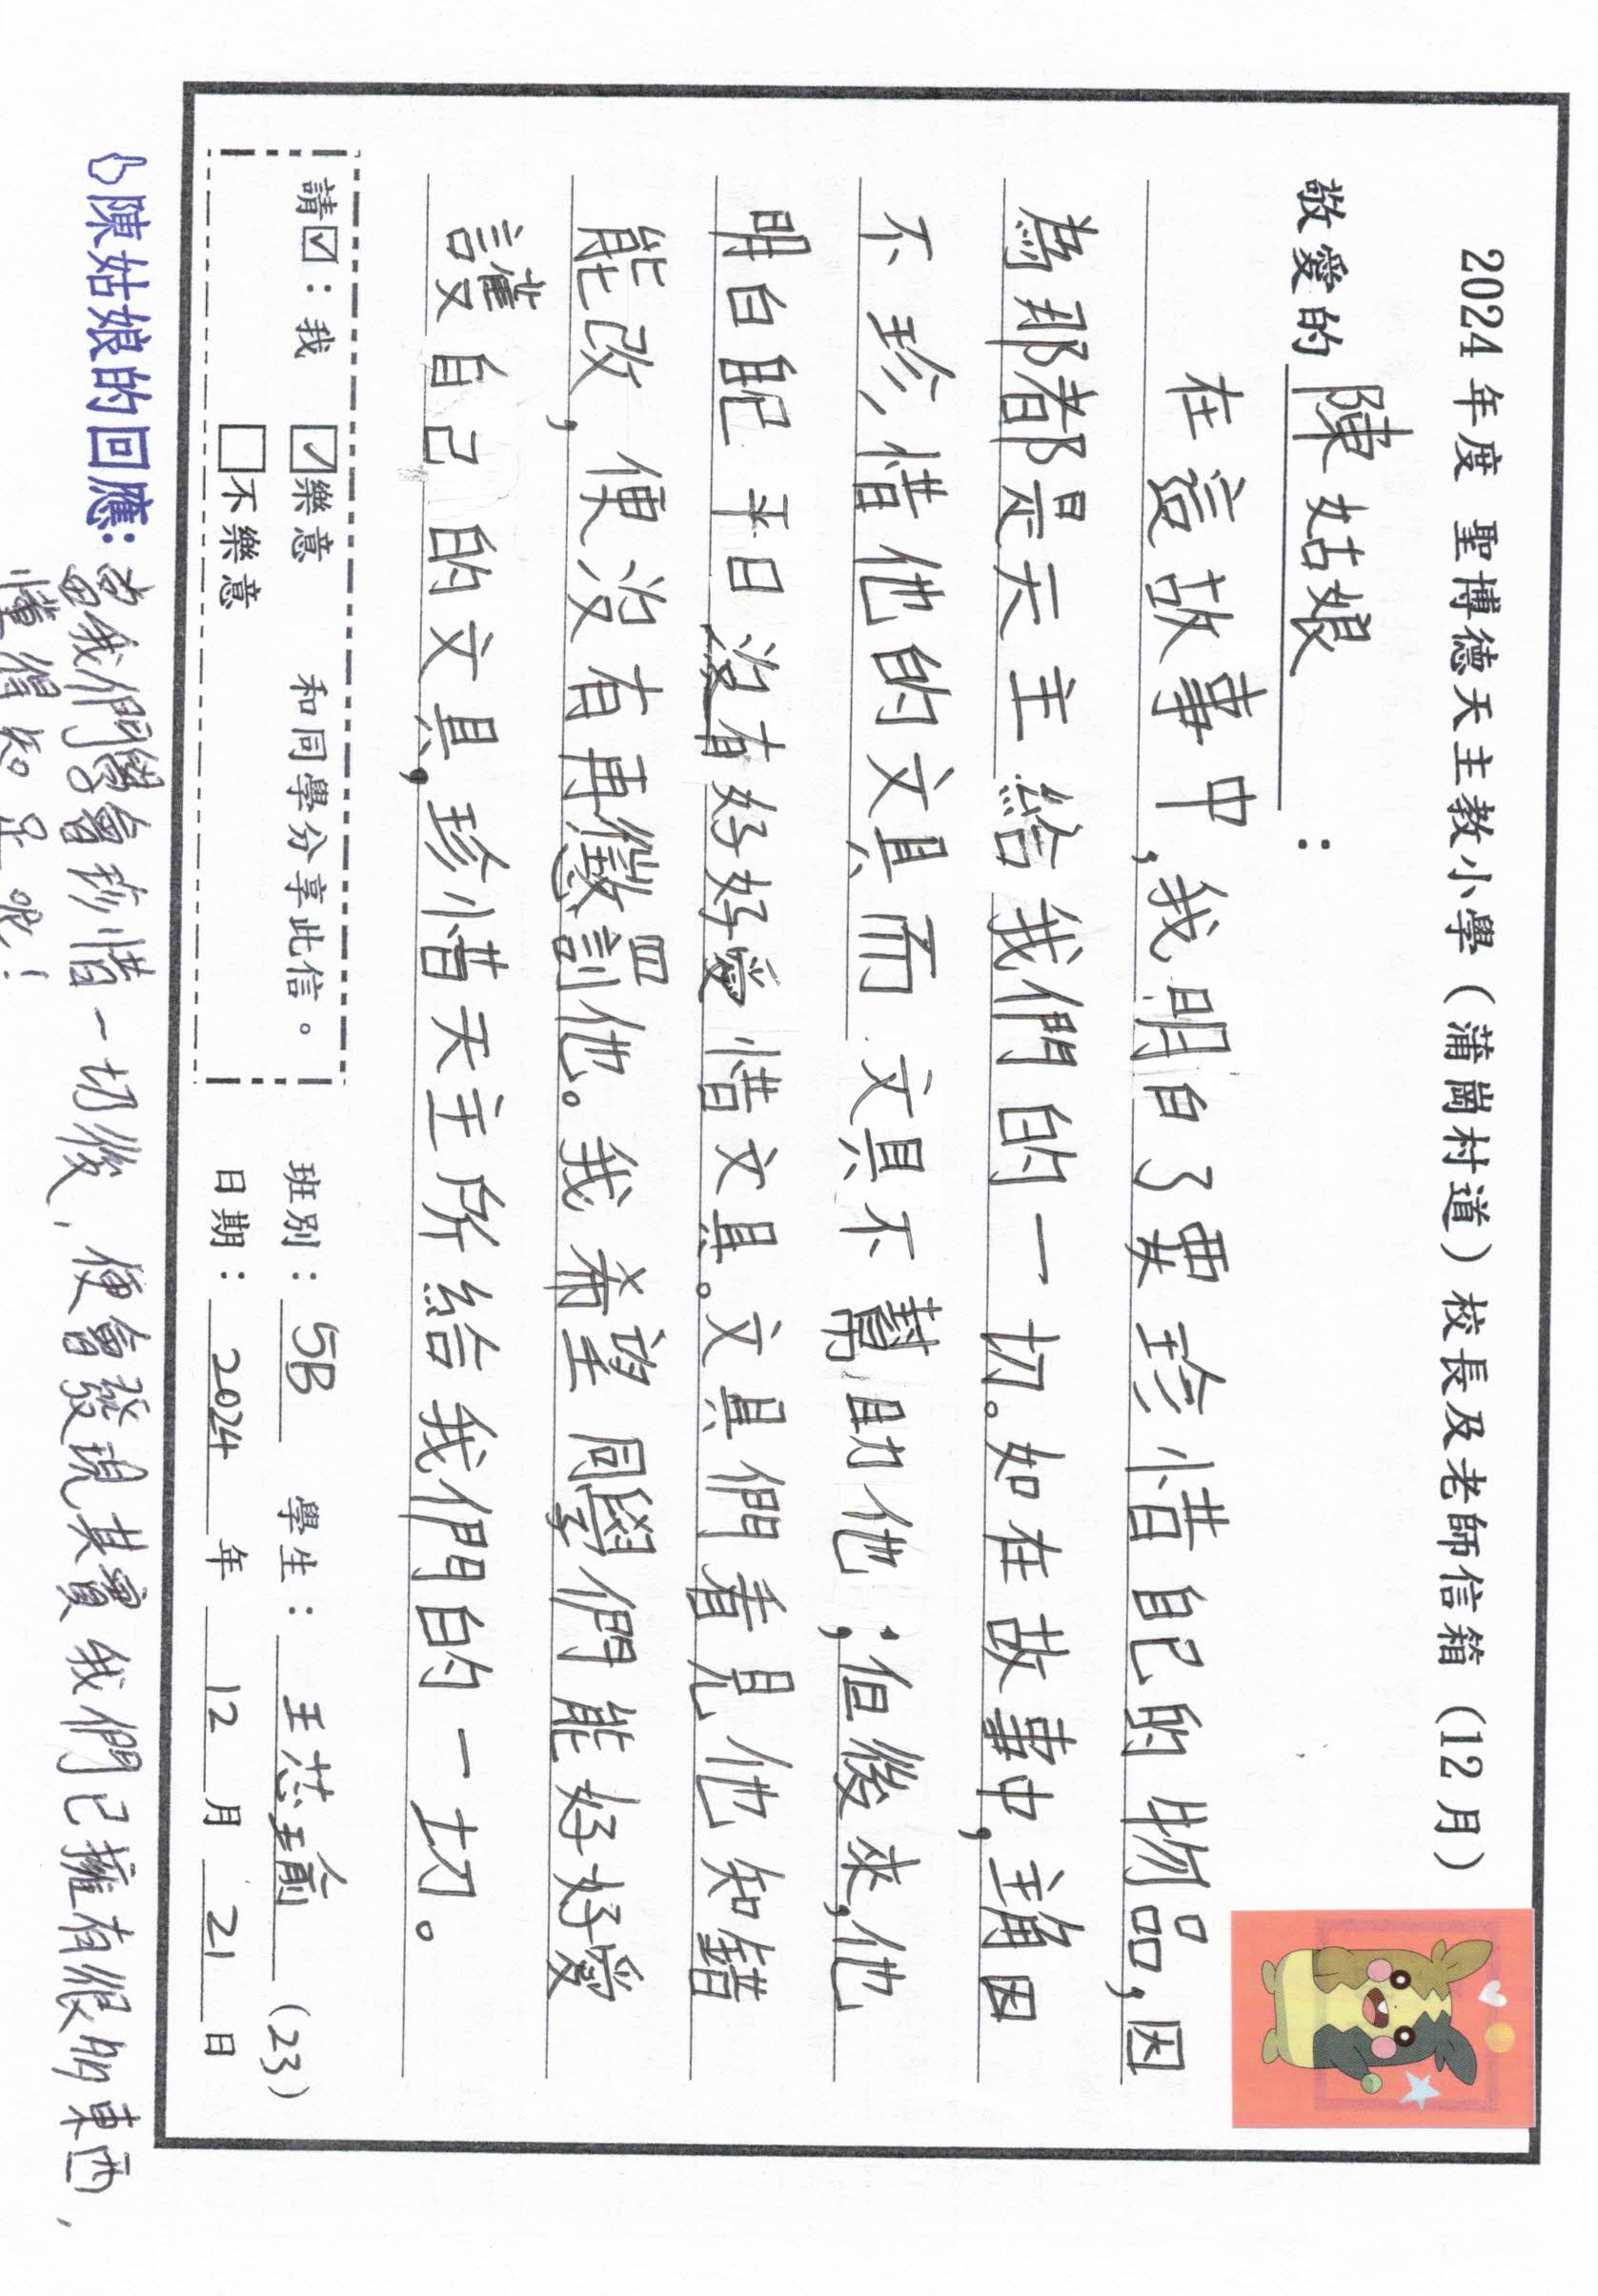 2024 年度 聖博德天主教小學（蒲崗村道）校長及老師信箱（12 月）
敬愛的 陳姑娘 ：
在這故事中,我明白了要珍惜自己的物品,因
為那都是天主給我們的一切。如在故事中,主角因
不珍惜他的文具而文具不幫助他；但後來,他
明白自己平日沒有好好愛惜文具。文具們看見他知錯
能改,便沒有再懲罰他。我希望同學們能好好愛
護自己的文具,珍惜天主所給我們的一切。
請☑：我 ☑樂意 和同學分享此信。
□不樂意
班別：5B 學生：王芯瑜（23）
日期：2024 年 12 月 21 日
陳姑娘的回應：當我們學會珍惜一切後，便會發現其實我們已擁有很多東西，
懂得知足呢！